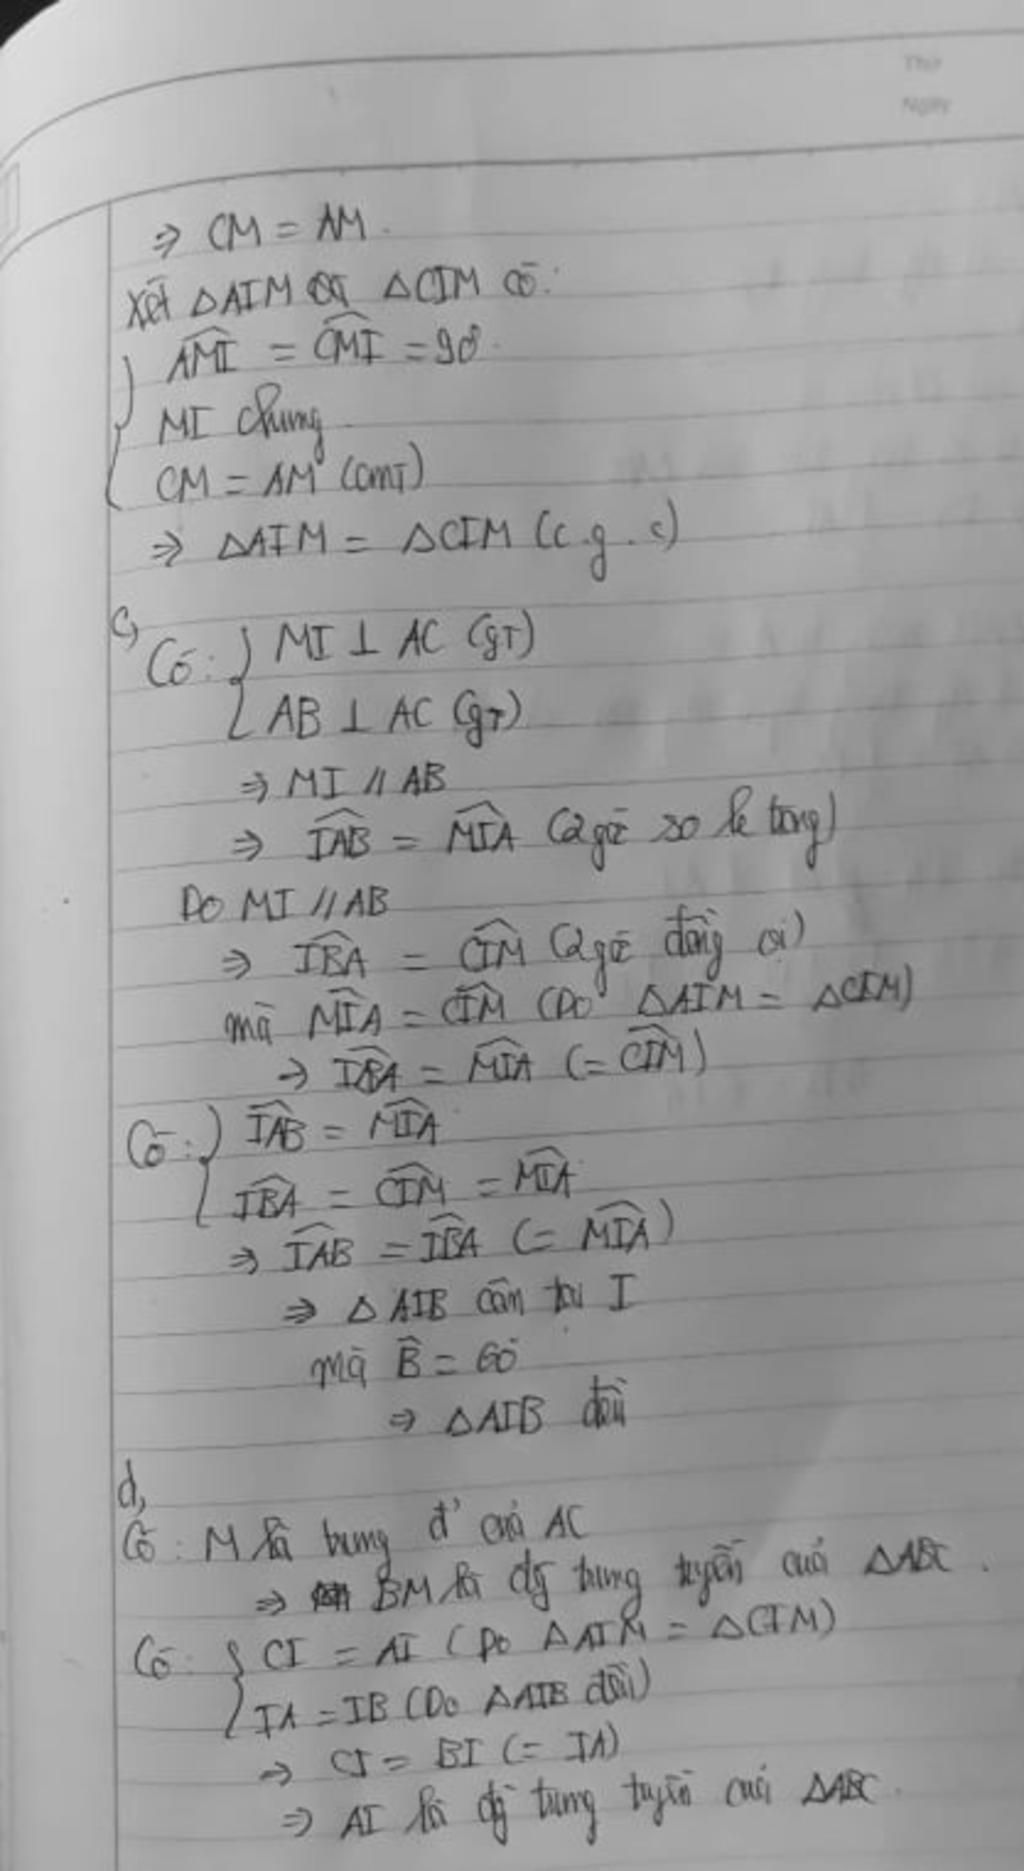 Thứ
Ngày
⇒ CM = AM.
Xét △AIM và △CIM có:
{ AMI = CMI = 90°
MI chung
CM = AM (cmt)
⇒ △AIM = △CIM (c.g.c)
c, Có: { MI ⊥ AC (gt)
AB ⊥ AC (gt)
⇒ MI // AB
⇒ IAB = MIA (2 góc so le trong)
Do MI // AB
⇒ IBA = CIM (2 góc đồng vị)
mà MIA = CIM (Do △AIM = △CIM)
⇒ IBA = MIA (= CIM)
Có: { IAB = MIA
IBA = CIM = MIA
⇒ IAB = IBA (= MIA)
⇒ △AIB cân tại I
mà B = 60°
⇒ △AIB đều
d,
Có: M là trung đ' của AC
⇒ BM là đg trung tuyến của △ABC.
Có: { CI = AI (Do △AIM = △CIM)
IA = IB (Do △AIB đều)
⇒ CI = BI (= IA)
⇒ AI là đg trung tuyến của △ABC.